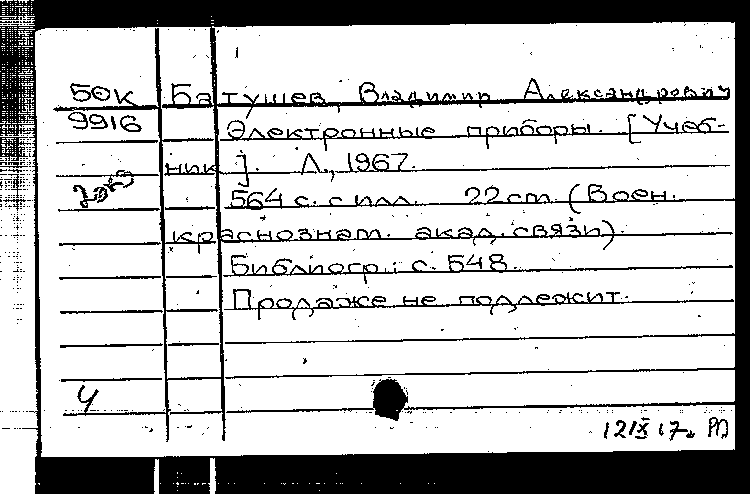 50К Батушев, Владимир Александрович
9916 Электронные приборы. [Учеб-
ник]. Л., 1967.
564 с. с илл. 22 cm. (Воен.
краснознам. акад. связи)
Библиогр.: с. 548.
Продаже не подлежит.
Ч